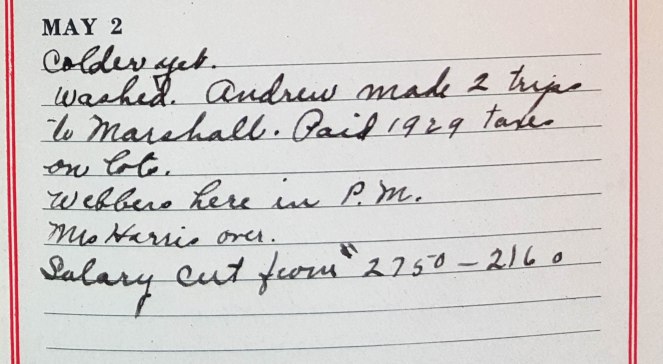 MAY 2
Colder yet.
Washed. Andrew made 2 trips
to Marshall. Paid 1929 taxes
on lots.
Webbers here in P.M.
Mrs Harris over.
Salary cut from " 2750 - 2160